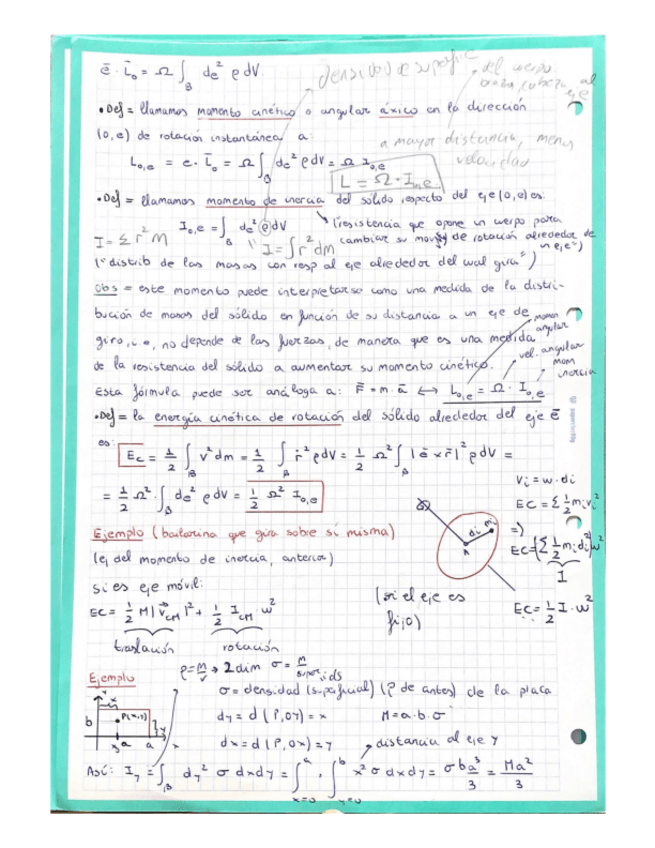 ē · L̄₀ = Ω ∫_B de² ρ dV.
densidad de superficie
del cuerpo
al eje
• Def = llamamos momento cinético o angular áxico en la dirección
(0,e) de rotación instantánea a:
a mayor distancia, menos velocidad
L₀,e = e · L̄₀ = Ω ∫_B de² ρ dV = Ω I₀,e
L = Ω · I₀,e
• Def = llamamos momento de inercia del sólido respecto del eje (0,e) es:
I₀,e = ∫_B de² ρ dV
(resistencia que opone un cuerpo para
cambiar su mov de rotación alrededor de
un eje)
I = Σ r² M
"I = ∫ r² dm
("distrib de las masas con resp al eje alrededor del cual gira")
Obs = este momento puede interpretarse como una medida de la distri-
bución de masas del sólido en función de su distancia a un eje de
giro, i.e, no depende de las fuerzas, de manera que es una medida
de la resistencia del sólido a aumentar su momento cinético.
momen angular
vel. angular
mom inercia
Esta fórmula puede ser análoga a: F̄ = m · ā ↔ L₀,e = Ω · I₀,e
• Def = la energía cinética de rotación del sólido alrededor del eje ē
es: Ec = 1/2 ∫_B v² dm = 1/2 ∫_B ṙ² ρ dV = 1/2 Ω² ∫_B |ē × r̄|² ρ dV =
= 1/2 Ω² · ∫_B de² ρ dV = 1/2 Ω² I₀,e
Vi = w · di
EC = Σ 1/2 mi vi²
=)
EC = (Σ 1/2 mi di²) w²
I
EC = 1/2 I · w²
di
mi
Ejemplo (bailarina que gira sobre sí misma)
(ej del momento de inercia, anterior)
Si es eje móvil:
(si el eje es
fijo)
EC = 1/2 M |v⃗CM|² + 1/2 ICM · w²
traslación rotación
ρ = m/v → 2dim σ = m/super
Ejemplo
σ = densidad (superficial) (ρ de antes) de la placa
dy = d(P,OY) = x M = a · b · σ
dx = d(P,OX) = y
distancia al eje Y
b
P(x,y)
a
x
Así: Iy = ∫_B dy² σ dxdy = ∫_{x=0}^a · ∫_{y=0}^b x² σ dxdy = σba³/3 = Ma²/3